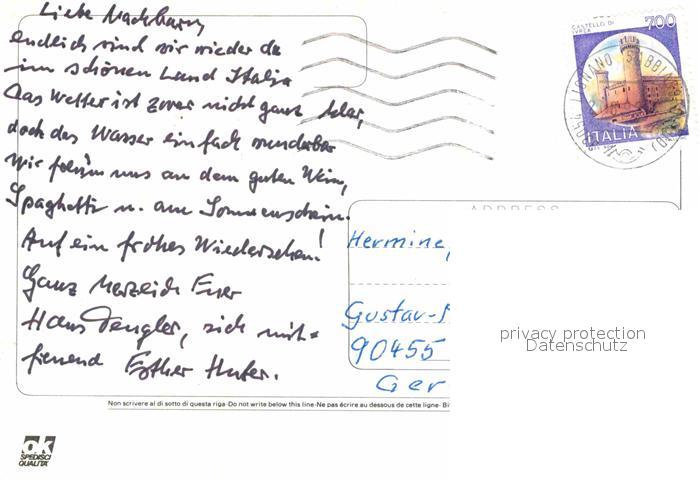 Liebe Nachbarn
endlich sind wir wieder da
im schönen Land Italia
Das Wetter ist zwar nicht ganz klar,
doch das Wasser einfach wunderbar
Wir freuen uns an dem guten Wein,
Spaghetti u. am Sonnenschein.
Auf ein frohes Wiedersehen!
Ganz herzlich Euer
Hans Dengler, sich mit-
freuend Esther Huter.
700
CASTELLO DI
IVREA
ITALIA
LIGNANO SABBIADORO
33054
ADDRESS
Hermine,
Gustav-
90455
Ger
privacy protection
Datenschutz
Non scrivere al di sotto di questa riga-Do not write below this line-Ne pas écrire au dessous de cette ligne-
ok
SPEDISCI
QUALITÀ